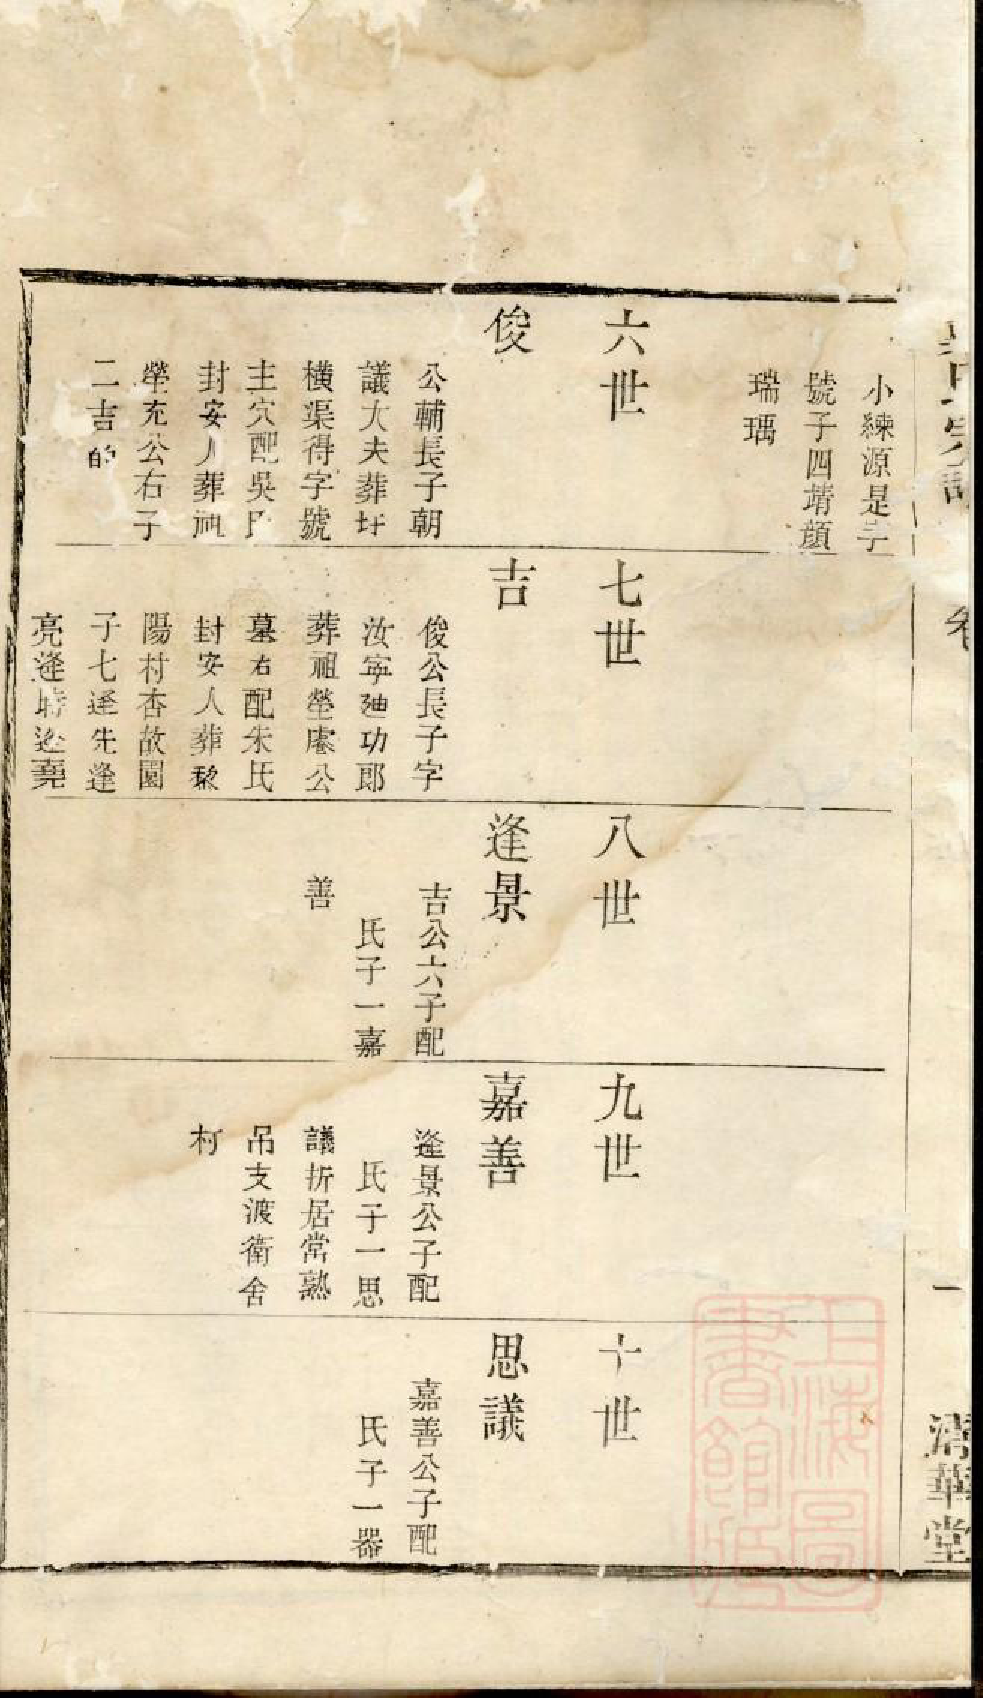 小練源是字
號子四靖顔
瑞瑀
六世
俊
公輔長子朝
議大夫葬圩
橫渠得字號
主穴配吳氏
封安人葬祔
塋充公右子
二吉的
七世
吉
俊公長子字
汝寧廸功郎
葬祖塋處公
墓右配朱氏
封安人葬黎
陽村杏故園
子七逢先逢
亮逢時逢堯
八世
逢景
吉公六子配
氏子一嘉
善
九世
嘉善
逢景公子配
氏子一思
議折居常熟
吊支渡衛舍
村
十世
思議
嘉善公子配
氏子一器
氏宗譜
卷
一
清華堂
上海圖
書館